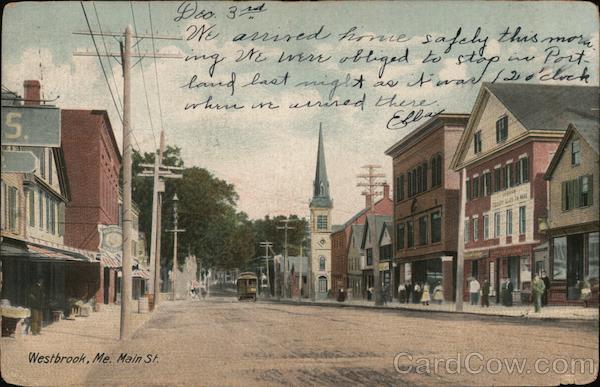 Dec. 3rd
We arrived home safely this morn-
ing We were obliged to stop in Port-
land last night as it was 12 o'clock
when we arrived there.
Ella
S.
Westbrook, Me. Main St.
CardCow.com